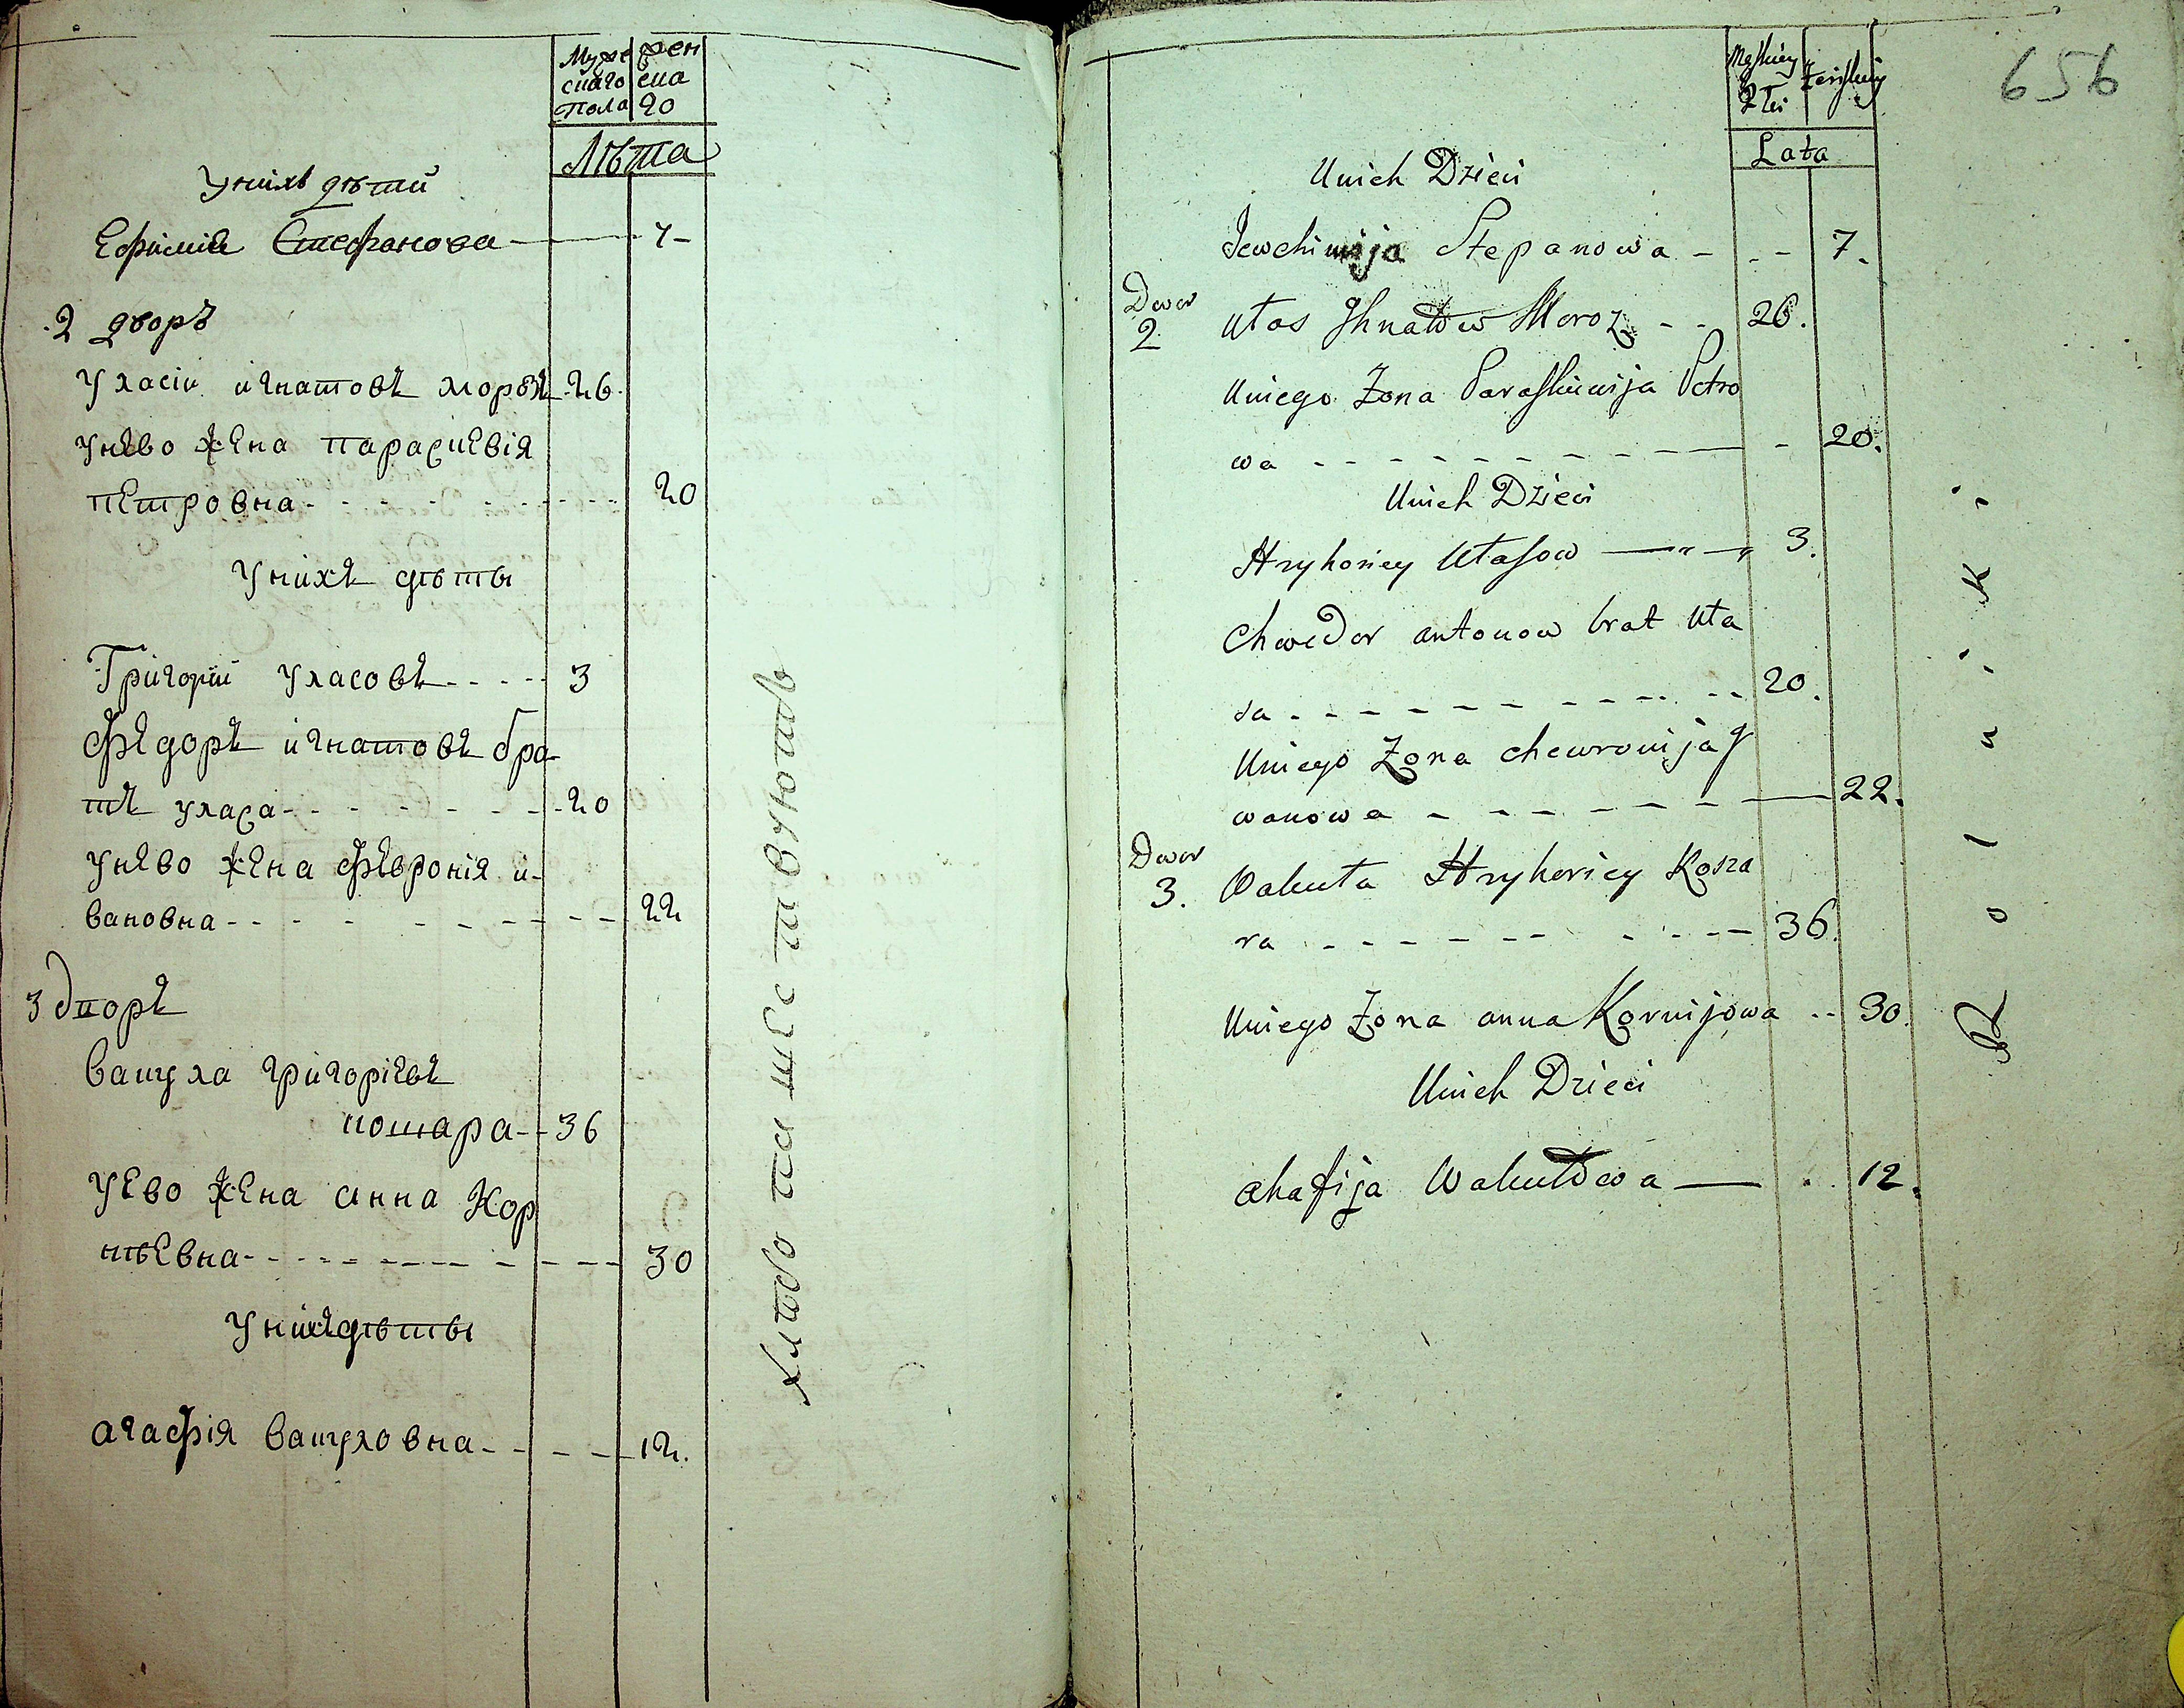 Муже
скаго
пола
жен
ска
го
Лѣта
Унихъ дѣти
Ефимия Стефанова 7
2 дворъ
Уласіи игнатовъ морозъ 26
унево жена параскевія
петровна 20
Унихъ дѣты
Григории Уласовъ 3
Федоръ игнатовъ бра
тъ уласа 20
Унево жена февронія и
вановна 22
3 дворъ
вакула григоріевъ
кошара 36
Уево жена анна Кор
нѣевна 30
Унихъ дѣты
агафія вакуловна 12.
хлѣбопашествуютъ
656
Męskiey
Płci
Żeńskiey
Lata
Unich Dzieci
Jewchimija Stepanowa 7.
Dwor
2 Ułas Ihnatow Moroz 26.
Uniego Żona Paraskiewija Petro
wa 20.
Unich Dzieci
Hryhoriey Ułasow 3.
Chwedor antonow brat Uła
sa 20.
Uniego Żona chewronija J
wanowa 22.
Dwor
3. Wakuła Hryhoriey Kosza
ra 36.
Uniego Żona anna Kornijowa 30.
Unich Dzieci
ahafija Wakułowa 12.
Rolniki